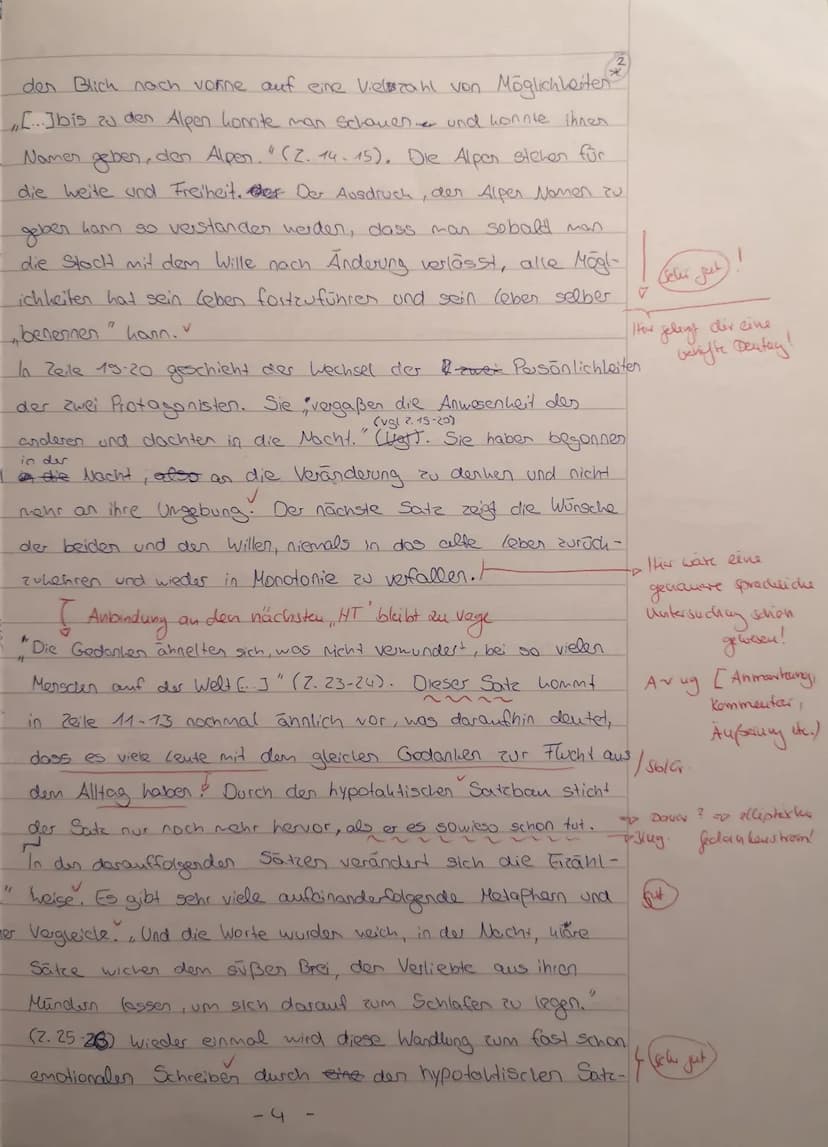 2
*
den Blick nach vorne auf eine Vielzahl von Möglichkeiten
„[...] bis zu den Alpen konnte man schauen und konnte ihnen
Namen geben, den Alpen." (Z. 14-15). Die Alpen stehen für
die Weite und Freiheit. Der Ausdruck, den Alpen Namen zu
geben kann so verstanden werden, dass man sobald man
die Stadt mit dem Wille nach Änderung verlässt, alle Mögl-
ichkeiten hat sein Leben fortzuführen und sein Leben selber
sehr gut !
„benennen" kann.
Hier gelingt dir eine
vertiefte Deutung!
In Zeile 19-20 geschieht der Wechsel der Persönlichkeiten
der zwei Protagonisten. Sie „vergaßen die Anwesenheit des
anderen und dachten in die Nacht." (vgl Z. 19-20). Sie haben begonnen
in der Nacht, an die Veränderung zu denken und nicht
mehr an ihre Umgebung. Der nächste Satz zeigt die Wünsche
der beiden und den Willen, niemals in das alte Leben zurück-
zukehren und wieder in Monotonie zu verfallen.
Hier wäre eine
genauere sprachliche
Untersuchung schön
gewesen!
Anbindung an den nächsten „HT" bleibt zu vage
„Die Gedanken ähnelten sich, was nicht verwundert, bei so vielen
Menschen auf der Welt [...]" (Z. 23-24). Dieser Satz kommt
A ug [Anmerkung,
Kommentar,
Äußerung etc.)
in Zeile 11-13 nochmal ännlich vor, was daraufhin deutet,
dass es viele Leute mit dem gleichen Gedanken zur Flucht aus
/ Sb/Gr
dem Alltag haben. Durch den hypotaktischen Satzbau sticht
der Satz nur noch mehr hervor, als er es sowieso schon tut.
elliptischer
Gedankenstrom!
In den darauffolgenden Sätzen verändert sich die Erzähl-
weise. Es gibt sehr viele aufeinanderfolgende Metaphern und
gut
Vergleiche. „Und die Worte wurden weich, in der Nacht, klare
Sätze wichen dem süßen Brei, den Verliebte aus ihren
Mündern lassen, um sich darauf zum Schlafen zu legen."
(Z. 25-26) Wieder einmal wird diese Wandlung zum fast schon
emotionalen Schreiben durch den hypotaktischen Satz-
sehr gut
- 4 -